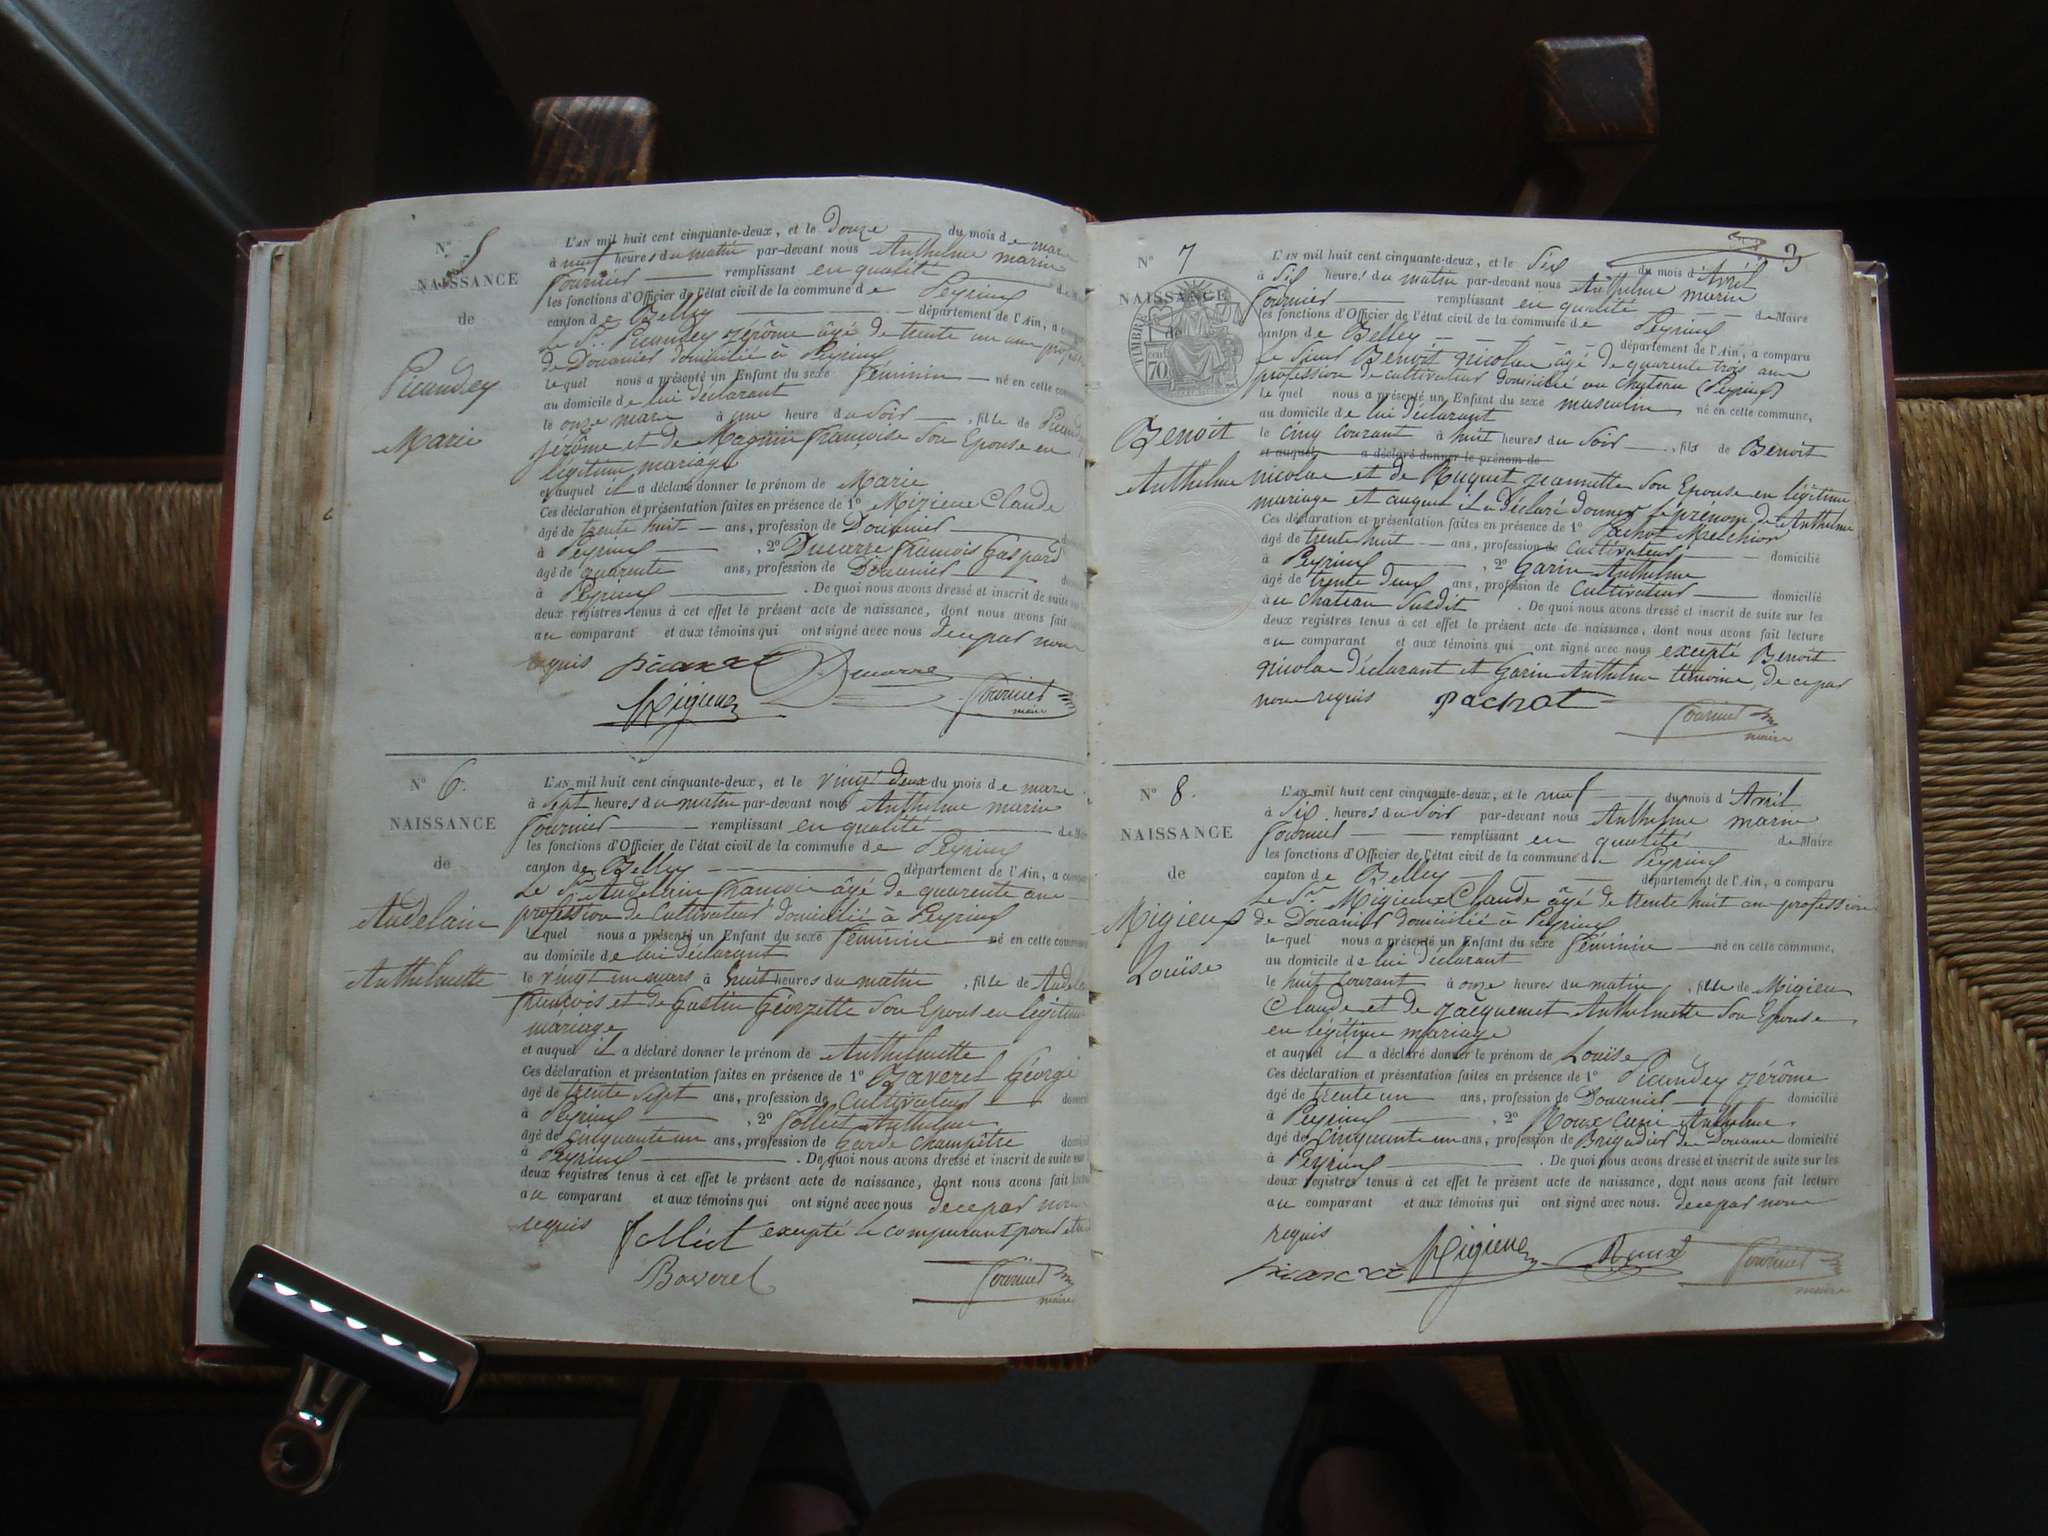 N° 5
NAISSANCE
de
Picandey
Marie
L'AN mil huit cent cinquante-deux, et le douze du mois de mars
à neuf heures du matin par-devant nous Anthelme marin
Fournier remplissant en qualité de
les fonctions d'Officier de l'état civil de la commune de Peyrieux
canton de Belley département de l'Ain, a
Le Sr. Picandey Jérôme âgé de trente un ans
de Douanier domicilié à Peyrieux
lequel nous a présenté un Enfant du sexe féminin né en cette
au domicile de lui déclarant
le onze mars à une heure du Soir, fille de
jérôme et de Magnin françoise Son Epouse en
légitime mariage
et auquel il a déclaré donner le prénom de Marie
Ces déclaration et présentation faites en présence de 1° Migieux Claude
âgé de trente huit ans, profession de Douanier
à Peyrieux, 2° Ducarre françois Gaspard
âgé de quarente ans, profession de Douanier
à Peyrieux. De quoi nous avons dressé et inscrit de suite
deux registres tenus à cet effet le présent acte de naissance, dont nous avons fait
au comparant et aux témoins qui ont signé avec nous de ce par nous
requis Ducarre
Migieux Fournier
maire
N° 6.
NAISSANCE
de
Audelain
Anthelmette
L'AN mil huit cent cinquante-deux, et le vingt deux du mois de mars
à Sept heures du matin par-devant nous Anthelme marin
Fournier remplissant en qualité de
les fonctions d'Officier de l'état civil de la commune de Peyrieux
canton de Belley département de l'Ain, a
Le Sr. Audelain françois âgé de quarente ans
profession de Cultivateur domicilié à Peyrieux
lequel nous a présenté un Enfant du sexe féminin né en cette
au domicile de lui déclarant
le vingt un mars à huit heures du matin, fille de
françois et de Gastin Géorgette Son Epouse en légitime
mariage
et auquel il a déclaré donner le prénom de Anthelmette
Ces déclaration et présentation faites en présence de 1° Baverel Géorge
âgé de trente Sept ans, profession de Cultivateur
à Peyrieux, 2° Folliet Anthelme
âgé de Cinquante un ans, profession de Garde Champêtre
à Peyrieux. De quoi nous avons dressé et inscrit de suite
deux registres tenus à cet effet le présent acte de naissance, dont nous avons fait
au comparant et aux témoins qui ont signé avec nous de ce par nous
requis Folliet excepté le comparant pour
Baverel Fournier
maire
3
N° 7
NAISSANCE
de
TIMBRE
70
Benoit
Anthelme
L'AN mil huit cent cinquante-deux, et le Six du mois d'Avril
à Six heures du matin par-devant nous Anthelme marin
Fournier remplissant en qualité de Maire
les fonctions d'Officier de l'état civil de la commune de Peyrieux
canton de Belley département de l'Ain, a comparu
Le Sieur Benoit nicolas âgé de quarente trois ans
profession de cultivateur domicilié au Chateau (Peyrieux)
lequel nous a présenté un Enfant du sexe masculin né en cette commune,
au domicile de lui déclarant
le Cinq Courant à huit heures du Soir, fils de Benoit
et auquel a déclaré donner le prénom de
nicolas et de Huguet jeannette Son Epouse en légitime
mariage et auquel il a déclaré donner le prénom de Anthelme
Ces déclaration et présentation faites en présence de 1° Pachot Melchior
âgé de trente huit ans, profession de Cultivateur domicilié
à Peyrieux, 2° Garin Anthelme
âgé de trente deux ans, profession de Cultivateur domicilié
au Chateau Susdit. De quoi nous avons dressé et inscrit de suite sur les
deux registres tenus à cet effet le présent acte de naissance, dont nous avons fait lecture
au comparant et aux témoins qui ont signé avec nous excepté Benoit
nicolas déclarant et Garin Anthelme témoins, de ce par
nous requis Pachot
Fournier
maire
N° 8.
NAISSANCE
de
Migieux
Louïse
L'AN mil huit cent cinquante-deux, et le neuf du mois d'Avril
à Six heures du Soir par-devant nous Anthelme marin
Fournier remplissant en qualité de Maire
les fonctions d'Officier de l'état civil de la commune de Peyrieux
canton de Belley département de l'Ain, a comparu
Le Sr. Migieux Claude âgé de trente huit ans profession
de Douanier domicilié à Peyrieux
lequel nous a présenté un Enfant du sexe féminin né en cette commune,
au domicile de lui déclarant
le huit Courant à onze heures du matin, fille de Migieu
Claude et de Jacquemet Anthelmette Son Epouse
en légitime mariage
et auquel il a déclaré donner le prénom de Louïse
Ces déclaration et présentation faites en présence de 1° Picandey jérôme
âgé de trente un ans, profession de Douanier domicilié
à Peyrieux, 2° Roux Anthelme
âgé de Cinquante un ans, profession de Brigadier de Douane domicilié
à Peyrieux. De quoi nous avons dressé et inscrit de suite sur les
deux registres tenus à cet effet le présent acte de naissance, dont nous avons fait lecture
au comparant et aux témoins qui ont signé avec nous. de ce par nous
requis
Migieux Roux Fournier
maire